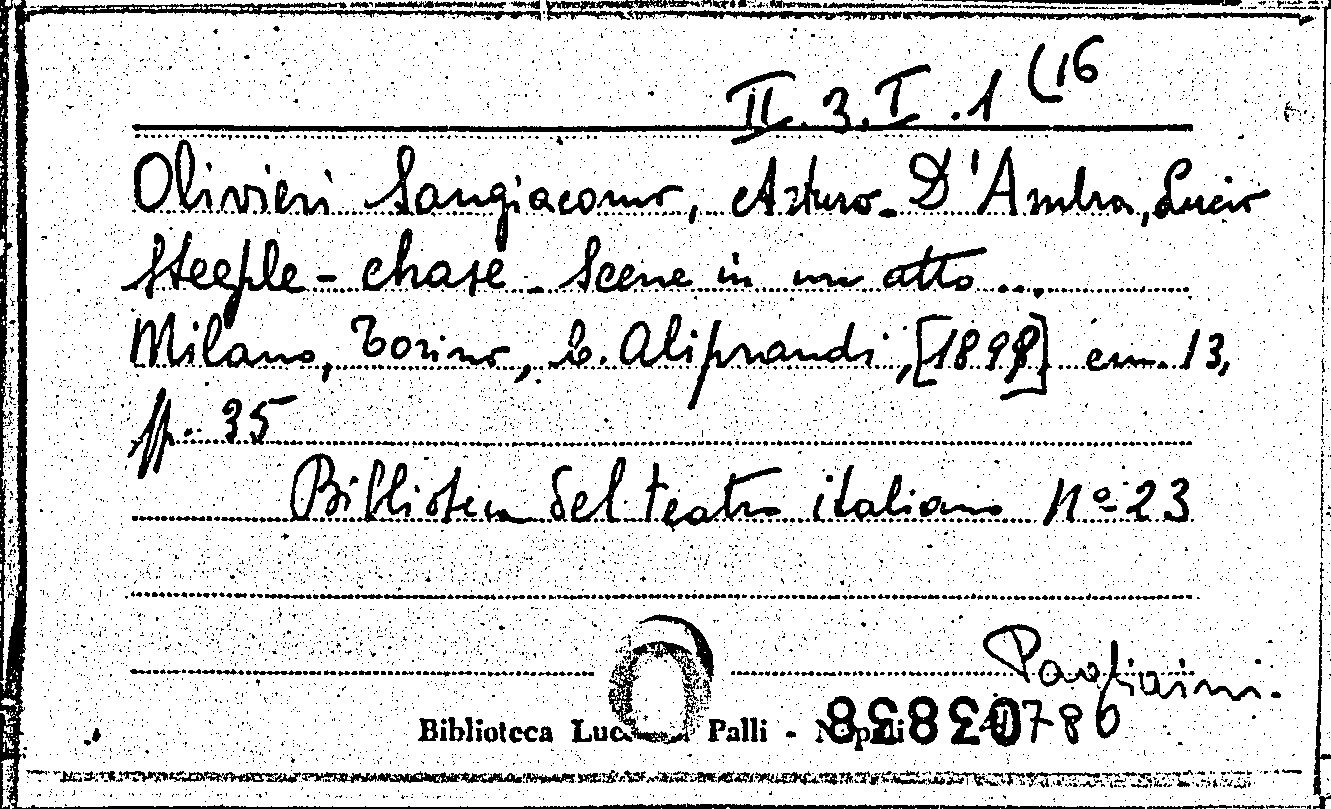 II.3.I.1 (16
Olivieri Sangiacomo, Arturo - D'Ambra, Lucio
Steeple-chase - Scene in un atto ...
Milano, Torino, C. Aliprandi, [1898] cm. 13,
pp. 35
Biblioteca del teatro italiano Nº 23
Pagliaini.
Biblioteca Palli -